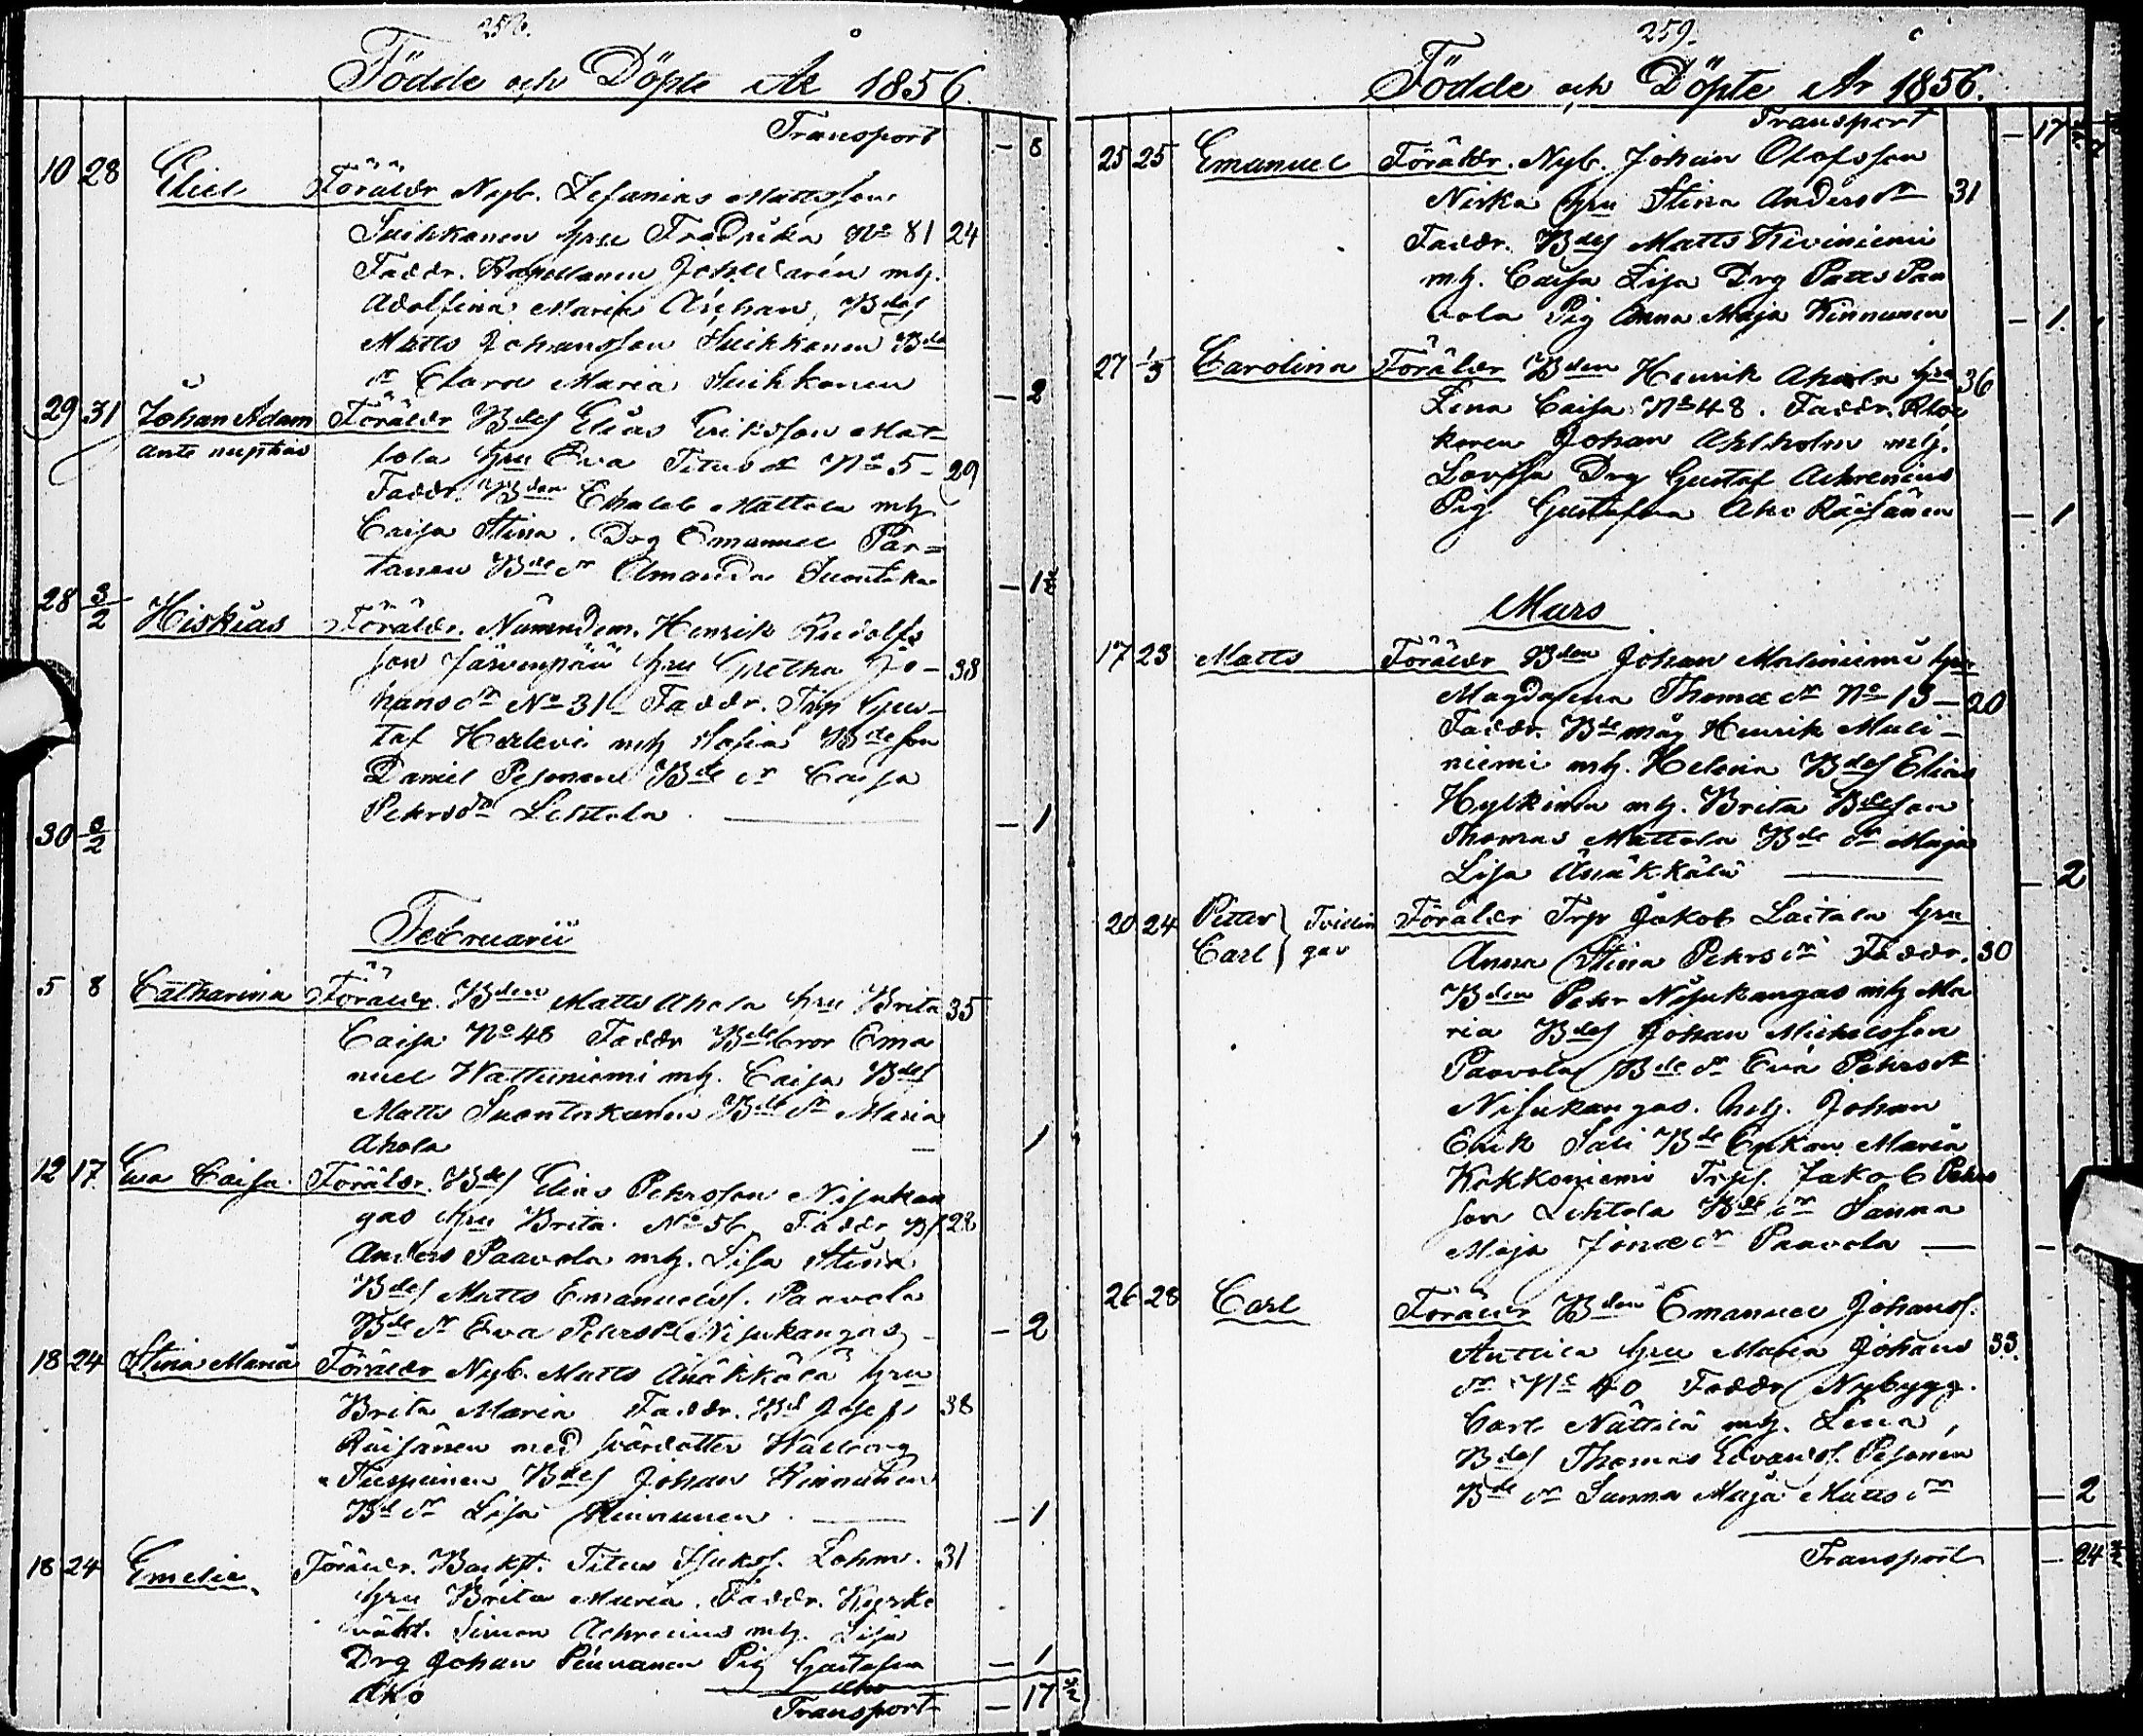 258.
Födde och Döpte År 1856.
Transport — 8
10 28 Eliel Föräldr. Nyb. Zefanias Mattsson
Suihkonen hru Fredrika No 81 24
Faddr. Kapellanen Joh. mh.
Adolfina Maria Bdes
Matts Johansson Suihkonen Bde
dr Clara Maria Suihkonen — 2
29 31 Johan Adam Föräldr Bdes Elias Eriksson Mat-
ante nuptias tola hru Eva Titus dr No 5- 29
Faddr. Bden Chaleb Mattola mh
Caisa Stina. Drg Emanuel Par=
tanen Bde dr Amanda — 1 1/2
28 3/2 Hiskias Föräldr. Nämndem. Henrik Rudolfs
son Järvenpää hru Gretha Jo- 38
hans dr No 31 Faddr. Trp Gus-
taf Herlevi mh Sofia Bde son
Daniel Pesonen Bde dr Caisa
Pehrs dr Lehtola — 1
30 3/2
Februarii
5 8 Catharina Föräldr. Bden Matts Ahola hru Brita 35
Caisa No 48 Faddr Bde bror Ema
nuel Wattuniemi mh. Caisa Bdes
Matts Suontakanen Bde dr Maria
Ahola — 1
12 17 Eva Caisa Föräldr. Bdes Elias Pehrsson Nisukan
gas hru Brita No 56 Faddr 28
Anders Paavola mh. Lisa Stina
Bdes Matts Emanuels. Paavola
Bde dr Eva Pehrs dr Nisukangas — 2
18 24 Stina Maria Föräldr Nyb. Matts Änäkkälä hru
Brita Maria Faddr. Bd Josef 38
Räisänen med svärdotter Walborg
Bdes Johan Kinnunen
Bd dr Lisa Kinnunen — 1
18 24 Emelie Föräldr. Backst. Titus Lohm. 31
hru Brita Maria. Faddr. Kyrko
väkt. Simon Achrenius mh. Lisa
Drg Johan Pig Gustafva — 1
Aho
Transport — 17 1/2
259.
Födde och Döpte År 1856.
Transport — 17 1/2
25 25 Emanuel Föräldr. Nyb. Johan Olofsson
Niska hru Stina Anders dr 31
Faddr. Bdes Matts Kiviniemi
mh. Caisa Lisa Drg Paa
vola Pig Anna Maja Kinnunen — 1
27 1/3 Carolina Föräldr Bden Henrik Ahola hru 36
Lena Caisa No 48. Faddr. Kloc
karen Johan Ahlholm mh.
Lovisa Drg Gustaf Achrenius
Pig Gustafva Aho Räisänen — 1
Mars
17 23 Matts Föräldr Bden Johan Maliniemi hru
Magdalena Thomæ dr No 13 — 20
Faddr. Bde måg Henrik Mali-
niemi mh. Helena Bdes Elias
mh. Brita Bde son
Thomas Mattola Bde dr Maja
Lisa Änäkkälä — 2
20 24 Petter } Tvillin Föräldr Trp Jakob Laitala hru
Carl } gar Anna Stina Pehrs dr Faddr. 30
Bden Pehr Nisukangas mh Ma
ria Bdes Johan Michelsson
Paavola Bde dr Eva Pehrs dr
Nisukangas. Johan
Erik Sali Bde Enkan Maria
Kokkoniemi Trps. Jakob Pehrs
son Lehtola Bde dr Sanna
Maja Jonæ dr Paavola —
26 28 Carl Föräldr Bden Emanuel Johans.
Anttila hru Maria Johans 33.
dr No 40 Faddr Nybygg.
Carl Nättilä mh. Lena
Bdes Thomas Edvards. Pesonen
Bde dr Sanna Maja Matts dr — 2
Transport — 24 1/2